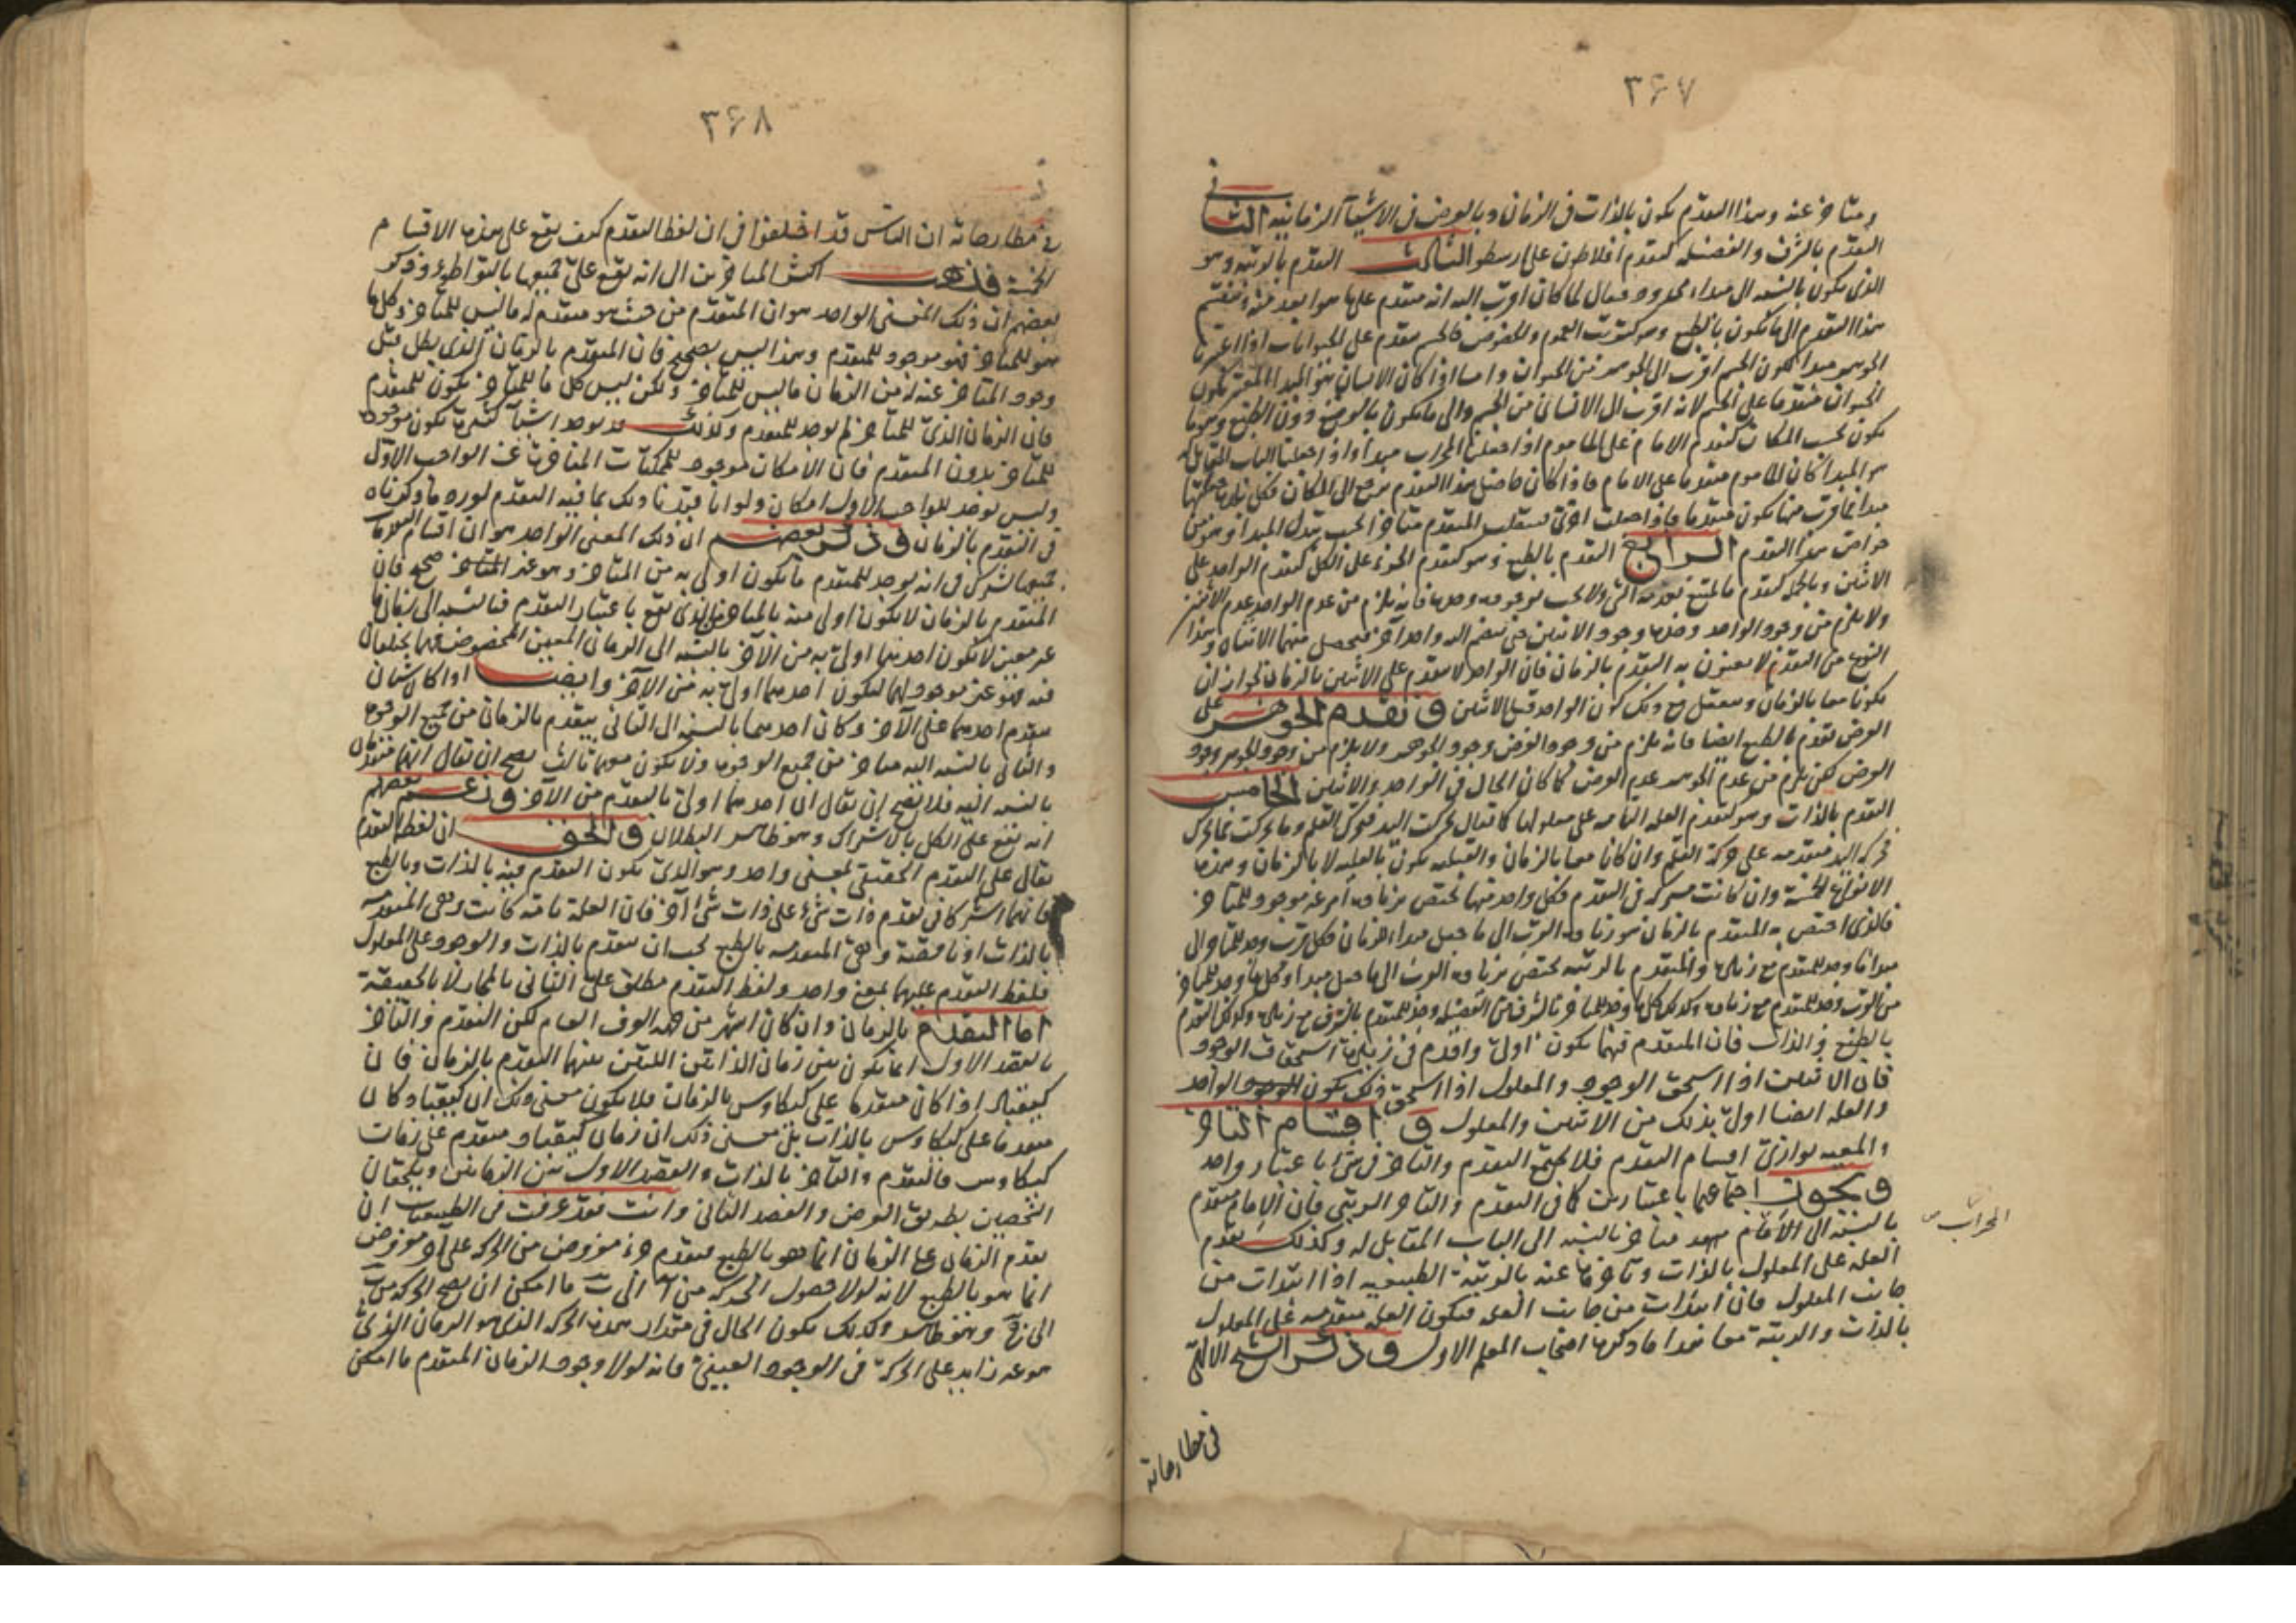 ٣۶٧
ومتاخر عنه وهذا التقدم يكون بالذات فى الزمان وبالعرض فى الاشيآ الزمانيه الثانى
التقدم بالشرف والفضيله كتقدم افلاطون على ارسطو الثالث التقدم بالرتبه وهو
الذى يكون بالنسبه الى مبداء محدود فيقال لما كان اقرب اليه انه متقدم على ما هو ابعد منه وينقسم
هذا التقدم الى ما يكون بالطبع وهو كترتب العموم والخصوص فالجسم متقدم على الحيوانات اذا اعتبرنا
الجوهر مبدا لكون الجسم اقرب الى الجوهر من الحيوان واما اذا كان الانسان هو المبدا المعتبر يكون
الحيوان متقدما على الجسم لانه اقرب الى الانسان من الجسم والى ما يكون بالوضع دون الطبع وهو ما
يكون بحسب المكان كتقدم الامام على الماموم اذا جعلنا المحراب مبدا واذا جعلنا الباب المقابل له
هو المبدا كان الماموم متقدما على الامام فاذا كان حاصل هذا التقدم يرجع الى المكان فكل نهايه جعلتها
مبدا فما قرب منها يكون متقدما فاذا جعلت اخرى ينقلب المتقدم متاخرا بحسب تبدل المبدا وهو من
خواص هذا التقدم الرابع التقدم بالطبع وهو كتقدم الجزء على الكل كتقدم الواحد على
الاثنين وبالجمله كتقدم ما يمتنع بعدمه الشى ولا يجب بوجوده وحده فانه يلزم من عدم الواحد عدم الاثنين
ولا يلزم من وجود الواحد وحده وجود الاثنين حتى ينضم اليه واحد آخر فيحصل منهما الاثنان وهذا
النوع من التقدم لا يعنون به التقدم بالزمان فان الواحد لا يتقدم على الاثنين بالزمان لجواز ان
يكونا معا بالزمان ويعقل مع ذلك كون الواحد قبل الاثنين وتقدم الجوهر على
العرض تقدم بالطبع ايضا فانه يلزم من وجود العرض وجود الجوهر ولا يلزم من وجود الجوهر وجود
العرض لكن يلزم من عدم الجوهر عدم العرض كما كان الحال فى الواحد والاثنين الخامس
التقدم بالذات وهو كتقدم العله التامه على معلولها كما يقال تحركت اليد فتحرك القلم وما تحركت بتحركه
فحركه اليد متقدمه على حركة القلم وان كانا معا بالزمان والقبليه يكون بالعليه لا بالزمان وهذه
الانواع الخمسة وان كانت مشتركه فى التقدم فكل واحد منها يختص بزيادة امر غير موجود للمتاخر
فالذى اختص به المتقدم بالزمان هو زيادة القرب الى ما جعل مبداء للزمان فكل قرب وجد للمتاخر الى
مبدا فانه وجد للمتقدم مع زيادة والمتقدم بالرتبه يختص بزيادة القرب الى ما جعل مبدا وكل ما وجد للمتاخر
من القرب وجد للمتقدم مع زيادة وكذلك كل ما وجد للمتاخر بالشرف من الفضيله وجد للمتقدم بالشرف مع زيادة وكذلك التقدم
بالطبع والذات فان المتقدم فيهما يكون اولى واقدم فى زيادة استحقاق الوجود
فان الاثنين اذا استحق الوجود والمعلول اذا استحق ذلك يكون الواحد
والعله ايضا اولى بذلك من الاثنين والمعلول واقسام التاخر
والمعيه يوازى اقسام التقدم فلا يجتمع التقدم والتاخر فى شئ باعتبار واحد
ويجوز اجتماعهما باعتبارين كما فى التقدم والتاخر الرتبى فان الامام متقدم
بالنسبة الى الامام وهو متاخر بالنسبه الى الباب المقابل له وكذلك تقدم
المحراب
العله على المعلول بالذات وتاخرها عنه بالرتبة الطبيعيه اذا ابتدات من
جانب المعلول فان ابتدات من جانب العله فيكون العله متقدمه على المعلول
بالذات والرتبة معا فهذا ما ذكره اصحاب المعلم الاول وذكر الشيخ الالهى
فى مطارحاته
٣۶٨
فى مطارحاته ان الناس قد اختلفوا فى ان لفظ التقدم كيف يقع على هذه الاقسام
الخمسة فذهب اكثر المتاخرين الى انه يقع على جميعها بالتواطؤ وذكر
بعضهم ان ذلك المعنى الواحد هو ان المتقدم من حيث هو متقدم له ما ليس للمتاخر وكل ما
هو للمتاخر فهو موجود للمتقدم وهذا ليس بصحيح فان المتقدم بالزمان الذى بطل قبل
وجود المتاخر عنه له من الزمان ما ليس للمتاخر ولكن ليس كل ما للمتاخر يكون للمتقدم
فان الزمان الذى للمتاخر لم يوجد للمتقدم وكذلك قد يوجد اشيآ كثيرة يكون موجودة
للمتاخر بدون المتقدم فان الامكان موجود للممكنات المتاخرة عن الواجب الاول
وليس يوجد للواجب الاول امكان ولو انا قيدنا ذلك بما فيه التقدم لورد ما ذكرناه
فى التقدم بالزمان وذكر بعضهم ان ذلك المعنى الواحد هو ان اقسام التقدمات
جميعها تشترك فى انه يوجد للمتقدم ما يكون اولى به من المتاخر وهو غير صحيح فان
المتقدم بالزمان لا يكون اولى منه بالمتاخر الذى يقع باعتبار التقدم فبالنسبه الى زمان ما
غير معين لا يكون احدهما اولى به من الآخر بالنسبه الى الزمان المعين المخصوص فهما يختلفان
فيه فهو غير موجود لهما ليكون احدهما اولى به من الآخر وايضا اذا كان شيئان
يتقدم احدهما على الآخر وكان احدهما بالنسبه الى الثانى يتقدم بالزمان من جميع الوجوه
والثانى بالنسبه اليه متاخر من جميع الوجوه ولا يكون معهما ثالث يصح ان يقال انهما متقدمان
بالنسبه اليه فلا يصح ان يقال ان احدهما اولى بالتقدم من الآخر وزعم بعضهم
انه يقع على الكل بالاشتراك وهو ظاهر البطلان والحق ان لفظ التقدم
يقال على التقدم الحقيقى بمعنى واحد وهو الذى يكون التقدم فيه بالذات وبالطبع
فانهما اشتركا فى تقدم ذات شئ على ذات شئ آخر فان العلة تامه كانت وهى المتقدمه
بالذات او ناقصة وهى المتقدمه بالطبع يجب ان يتقدم بالذات والوجود على المعلول
فلفظ التقدم عليهما بمعنى واحد ولفظ التقدم مطلق على الثانى بالمجاز لا بالحقيقة
اما التقدم بالزمان وان كان اشهر من جهه العرف العام لكن التقدم والتاخر
بالقصد الاول انما يكون بين زمان الذاتين اللتين بينهما التقدم بالزمان فان
كيقباد اذا كان متقدما على كيكاوس بالزمان فلا يكون معنى ذلك ان كيقباد كان
متقدما على كيكاوس بالذات بل معنى ذلك ان زمان كيقباد متقدم على زمان
كيكاوس فالتقدم والتاخر بالذات والقصد الاول بين الزمانين ويلحقان
الشخصين بطريق العرض والقصد الثانى وانت فقد عرفت فى الطبيعيات ان
تقدم الزمان على الزمان انما هو بالطبع فتقدم جزء مفروض من الحركه على آخر مفروض
انما هو بالطبع لانه لولا حصول الحركه من آ الى ب ما امكن ان يصح الحركه من ب
الى ج وهو ظاهر وكذلك يكون الحال فى مقدار هذه الحركه الذى هو الزمان الذى
هو غير زايد على الحركة فى الوجود العينى فانه لولا وجود الزمان المتقدم ما امكن